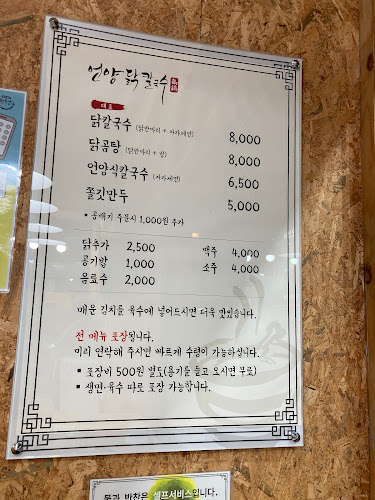 언양닭칼국수
대표
닭칼국수 (닭반마리 + 자가제면) 8,000
닭곰탕 (닭반마리 + 밥) 8,000
언양식칼국수 (자가제면) 6,500
쫄깃만두 5,000
• 곱빼기 주문시 1,000원 추가
닭추가 2,500 맥주 4,000
공기밥 1,000 소주 4,000
음료수 2,000
매운 김치를 육수에 넣어드시면 더욱 맛있습니다.
전 메뉴 포장됩니다.
미리 연락해 주시면 빠르게 수령이 가능하십니다.
• 포장비 500원 별도(용기를 들고 오시면 무료)
• 생면·육수 따로 포장 가능합니다.
물과 반찬은 셀프서비스입니다.